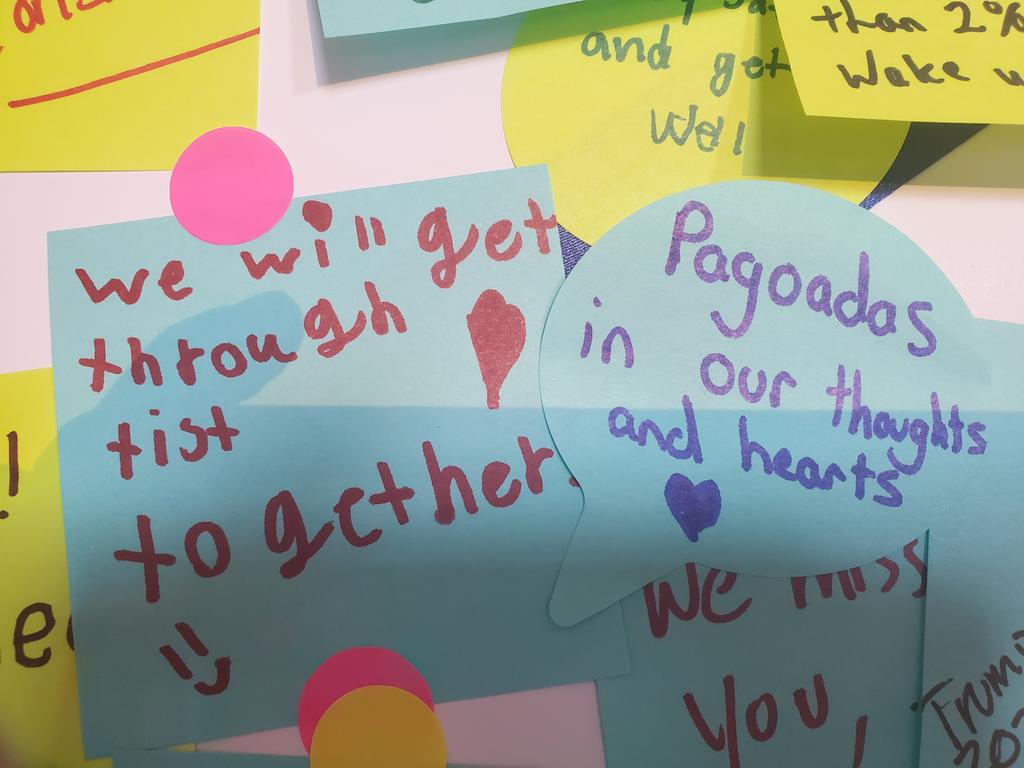 and get
Well
than 2%
Wake u
we will get
through
tist
together.
Pagoadas
in our thoughts
and hearts
We miss
you,